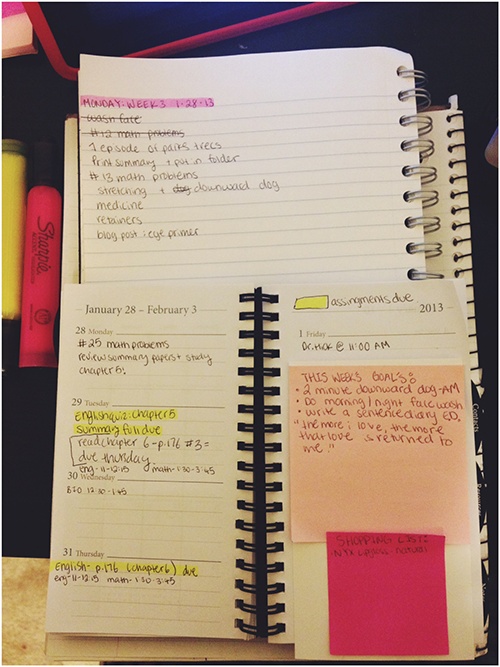 MONDAY: WEEK 3 1-28-13
wash face
#12 math problems
1 episode of parks & recs
Print summary + put in folder
#13 math problems
stretching + dog downward dog
medicine
retainers
blog post: eye primer
Sharpie
January 28 – February 3
28 Monday
#25 math problems
review summary papers + study
chapter 5!
29 Tuesday
English quiz: chapter 5
summary full due
read chapter 6-p.176 #3=
due thursday
eng-11-12:15 math-1:30-3:45
30 Wednesday
BIO 12:30-1:45
31 Thursday
English- p.176 (chapter 6) due
eng-11-12:15 math-1:30-3:45
assingments due
2013
1 Friday
Dr. Hick @ 11:00 AM
THIS WEEKS GOALS:
• 2 minute downward dog-AM
• Do morning/night facewash
• write a sentence diary ED.
"The more i love, the more
that love is returned to
me."
SHOPPING LIST:
NYX lipgloss-natural
Contacts